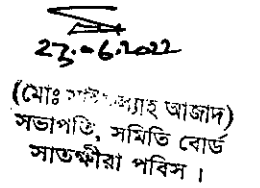 27.06.2022
(মোঃ আজাদ)
সভাপতি, সমিতি বোর্ড
সাতক্ষীরা পবিস।